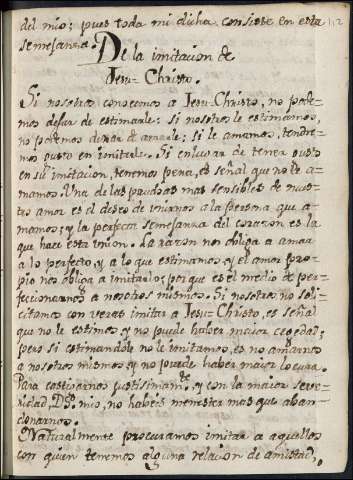 del mio; pues toda mi dicha consiste en esta 112
semejanza.
De la imitacion de
Jesu-Christo.
Si nosotros conocemos a Jesu-Christo, no pode-
mos dejar de estimarle: si nosotros le estimamos,
no podemos dexar de amarle: si le amamos, tendre-
mos gusto en imitarle. Si en lugar de tener gusto
en su imitacion, tenemos pena, es señal que no le a-
mamos. Una de las pruebas mas sensibles de nues-
tro amor es el deseo de unirnos a la persona que a-
mamos; y la perfecta semejanza del corazon es la
que hace esta union. La razon nos obliga a amar
a lo perfecto, y a lo que estimamos, y el amor pro-
pio nos obliga a imitarlo; porque es el medio de per-
feccionarnos a nosotros mismos. Si nosotros no soli-
citamos con veras imitar a Jesu-Christo, es señal
que no le estimas y no puede haber maior cegedad;
pero si estimandole no le imitamos, es no amarnos
a nosotros mismos y no puede haber maior locura.
Para castigarnos justisimamte, y con la maior seve-
ridad, Ds. mio, no habeis menester mas que aban-
donarnos.
Naturalmente procuramos imitar a aquellos
con quien tenemos alguna relacion de amistad,